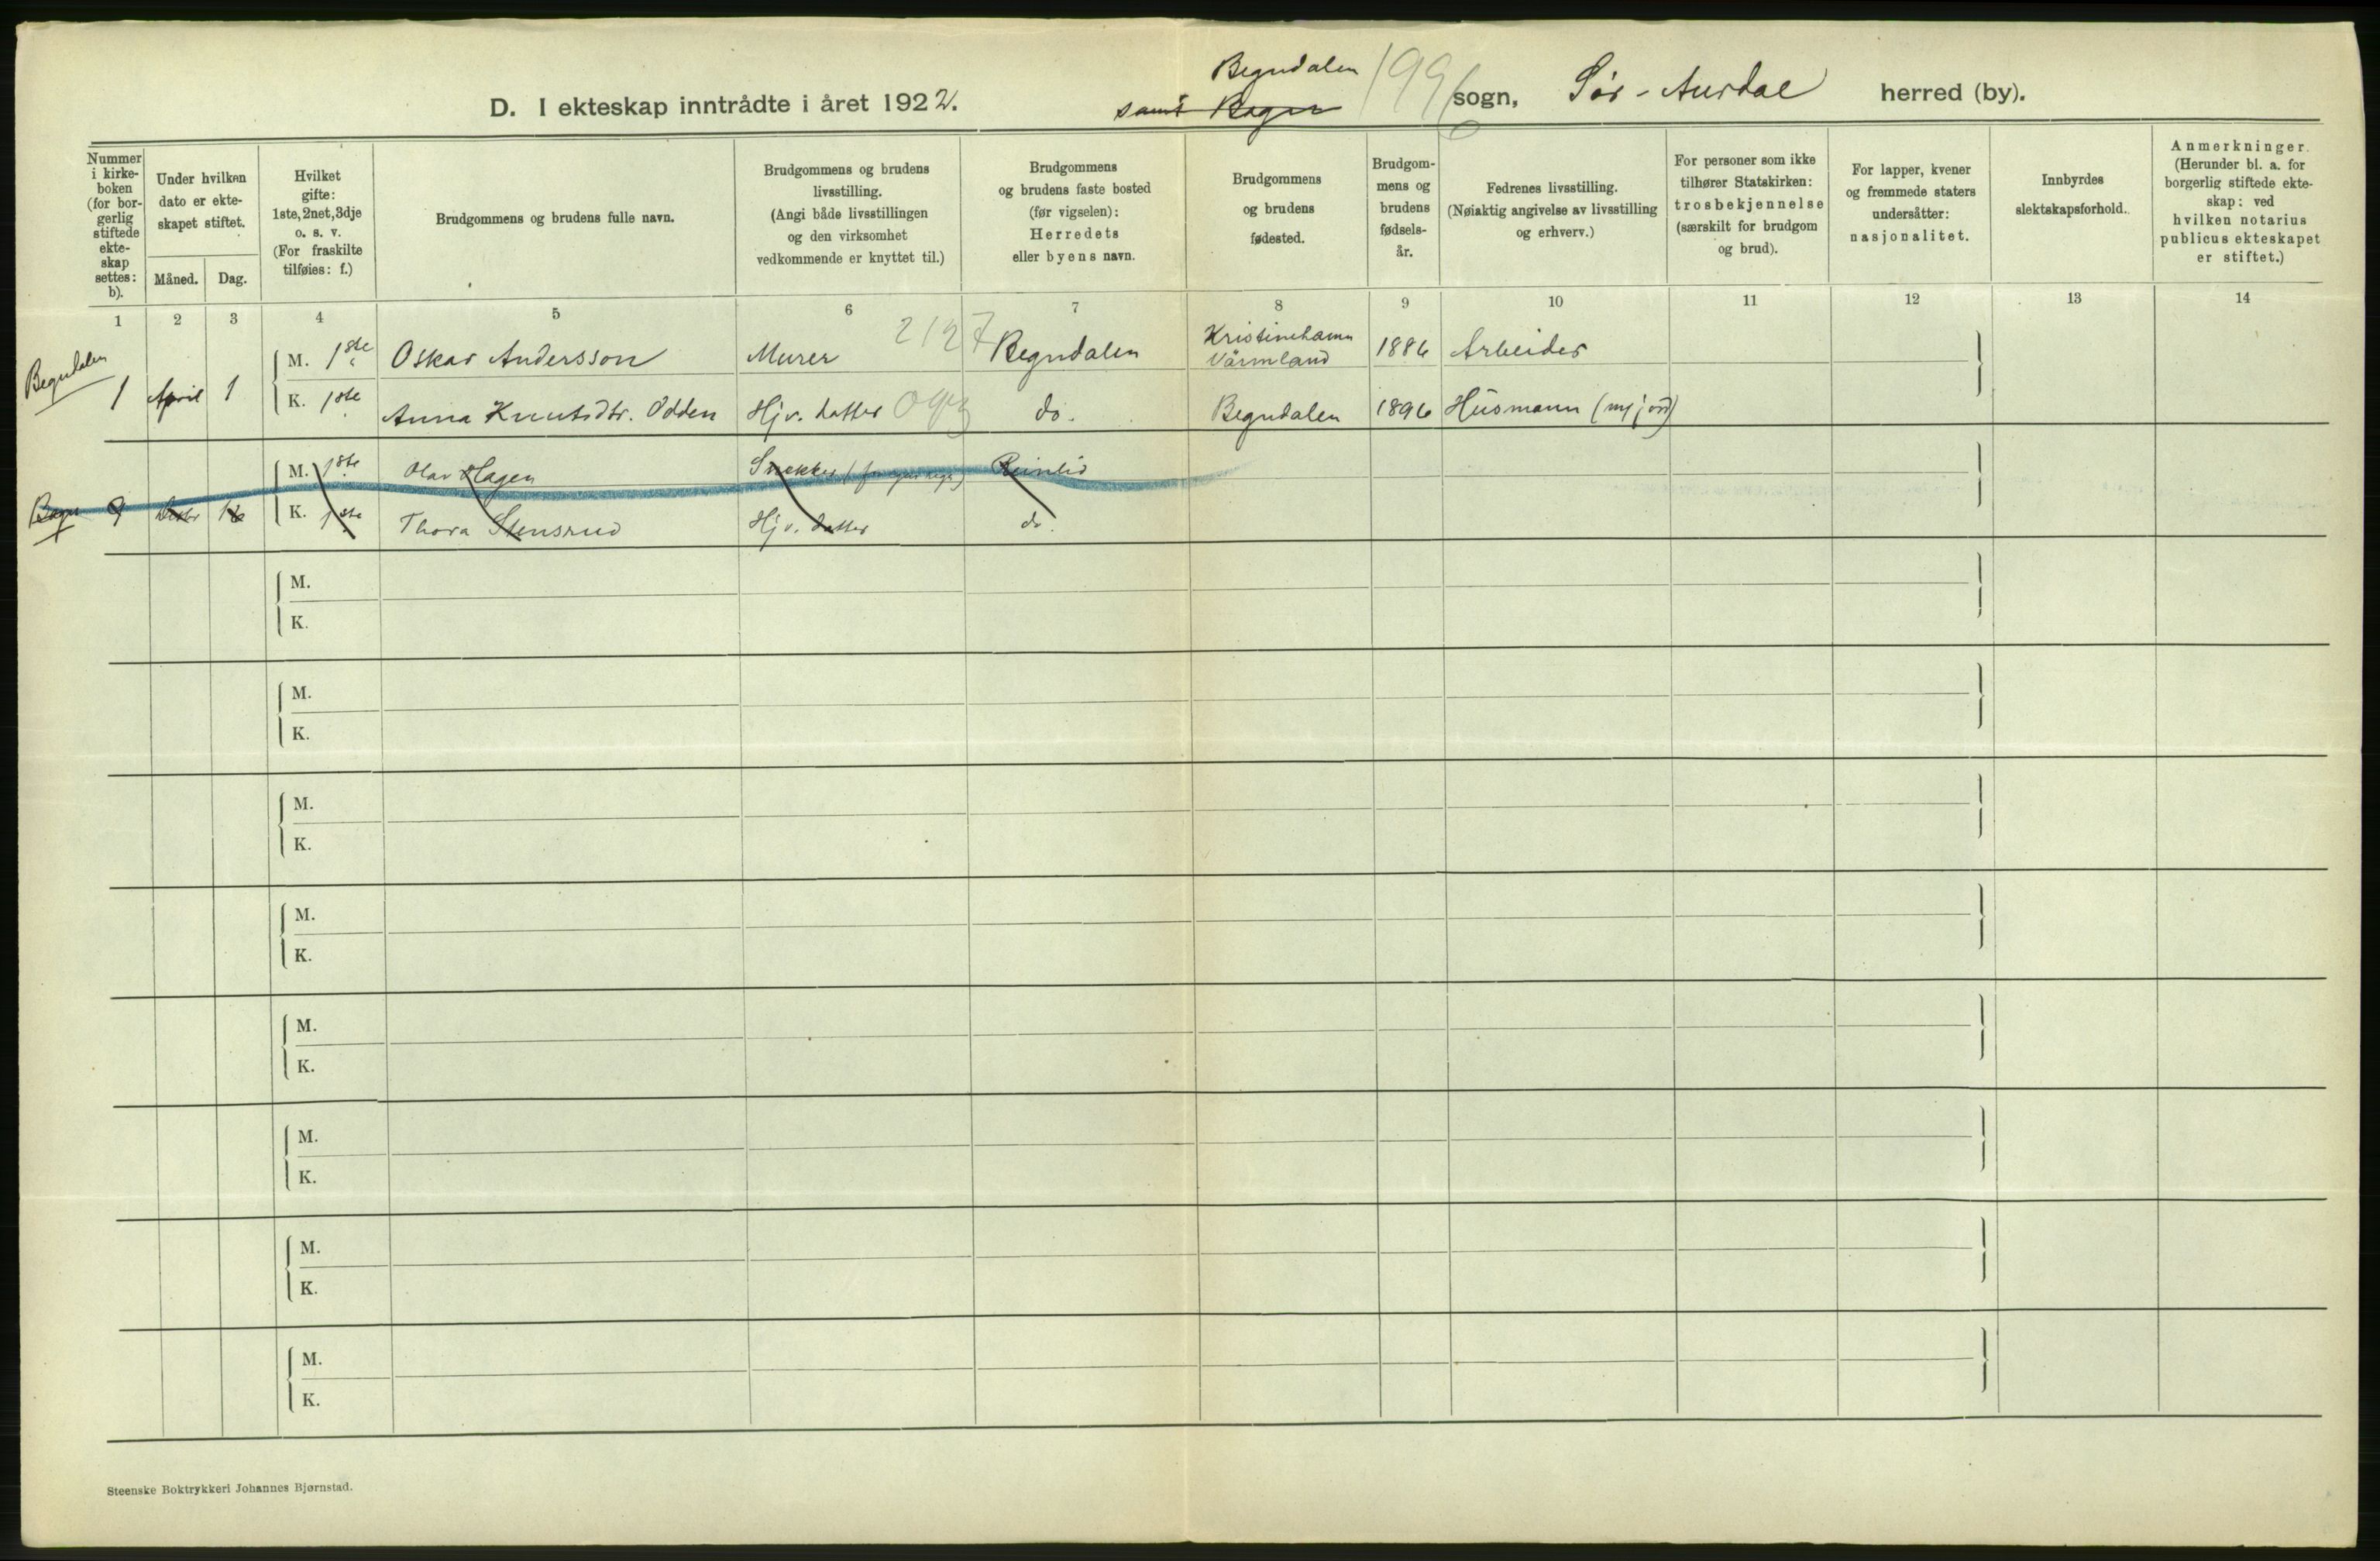 D. I ekteskap inntrådte i året 1922.
Begndalen
samt Bagn
sogn,
Sør-Aurdal
herred (by).
Nummer i kirke-boken (for bor-gerlig stiftede ekte-skap settes: b).
Under hvilken dato er ekte-skapet stiftet.
Måned. Dag.
Hvilket gifte: 1ste, 2net, 3dje o. s. v. (For fraskilte tilføies: f.)
Brudgommens og brudens fulle navn.
Brudgommens og brudens livsstilling. (Angi både livsstillingen og den virksomhet vedkommende er knyttet til.)
Brudgommens og brudens faste bosted (før vigselen): Herredets eller byens navn.
Brudgommens og brudens fødested.
Brudgom-mens og brudens fødsels-år.
Fedrenes livsstilling. (Nøiaktig angivelse av livsstilling og erhverv.)
For personer som ikke tilhører Statskirken: trosbekjennelse (særskilt for brudgom og brud).
For lapper, kvener og fremmede staters undersåtter: nasjonalitet.
Innbyrdes slektskapsforhold.
Anmerkninger. (Herunder bl. a. for borgerlig stiftede ekte-skap: ved hvilken notarius publicus ekteskapet er stiftet.)
1 2 3 4 5 6 7 8 9 10 11 12 13 14
Begndalen
1 April 1
M. 1ste Oskar Andersson Murer 2127 Begndalen Kristinehamn Värmland 1886 Arbeider
K. 1ste Anna Knutsdtr. Odden Hjv. datter do. Begndalen 1896 Husmann (m/jord)
Bagn 9
M. 1ste Olav Hagen Snekker Reinlid
K. 1ste Thora Stensrud Hjv. datter do.
M.
K.
M.
K.
M.
K.
M.
K.
M.
K.
M.
K.
M.
K.
M.
K.
Steenske Boktrykkeri Johannes Bjørnstad.